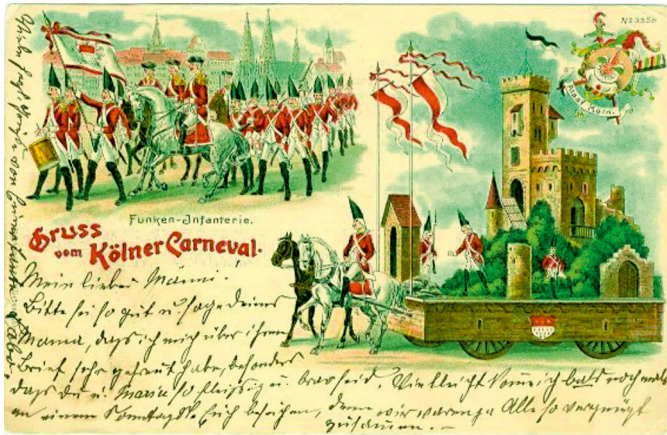 No 3556
Alaaf Köln.
Funken-Infanterie.
Gruss
vom Kölner Carneval.
Mein lieber Männi!
Bitte sei so gut u. sage deiner
Mama, daß ich mich über ihren
Brief sehr gefreut habe, besonders
daß du u. Maria so fleißig u. brav seid. Vielleicht komme ich bald noch mal
an einem Sonntag Euch besuchen, denn wir waren ja Alle so vergnügt
zusammen.